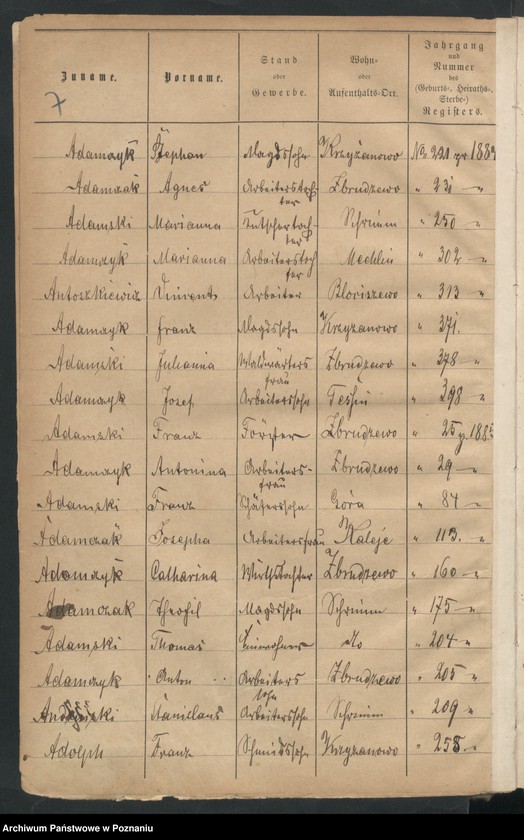 Zuname. Vorname. Stand oder Gewerbe. Wohn- oder Aufenthalts-Ort. Jahrgang und Nummer des (Geburts-, Heiraths-, Sterbe-) Registers.
7
Adamczyk Stephan Magdssohn Krzyżanowo No 221 pr 1884
Adamczak Agnes Arbeiterstochter Zbrudzewo " 231 "
Adamski Marianna Kutschertochter Schrimm " 250 "
Adamczyk Marianna Arbeiterstochter Mechlin " 302 "
Antoszkiewicz Vincent Arbeiter " 313 "
Adamczyk Franz Magdssohn Krzyżanowo " 371.
Adamski Julianna Waldwärtersfrau Zbrudzewo " 378 "
Adamczyk Josef Arbeiterssohn " 398 "
Adamski Franz Förster Zbrudzewo " 25 p. 1885
Adamczyk Antonina Arbeitersfrau Zbrudzewo " 29 "
Adamski Franz Schäferssohn Góra " 84 "
Adamczak Josepha Arbeitersfrau " 113. "
Adamczyk Catharina Wirthstochter Zbrudzewo " 160 "
Adamczak Theophil Magdssohn Schrimm " 175 "
Adamski Thomas Einwohner do " 204 "
Adamczyk Anton Arbeiterssohn Zbrudzewo " 205 "
Stanislaus Arbeiterssohn Schrimm " 209 "
Adolph Franz Schmidssohn Krzyżanowo " 258. "
Archiwum Państwowe w Poznaniu